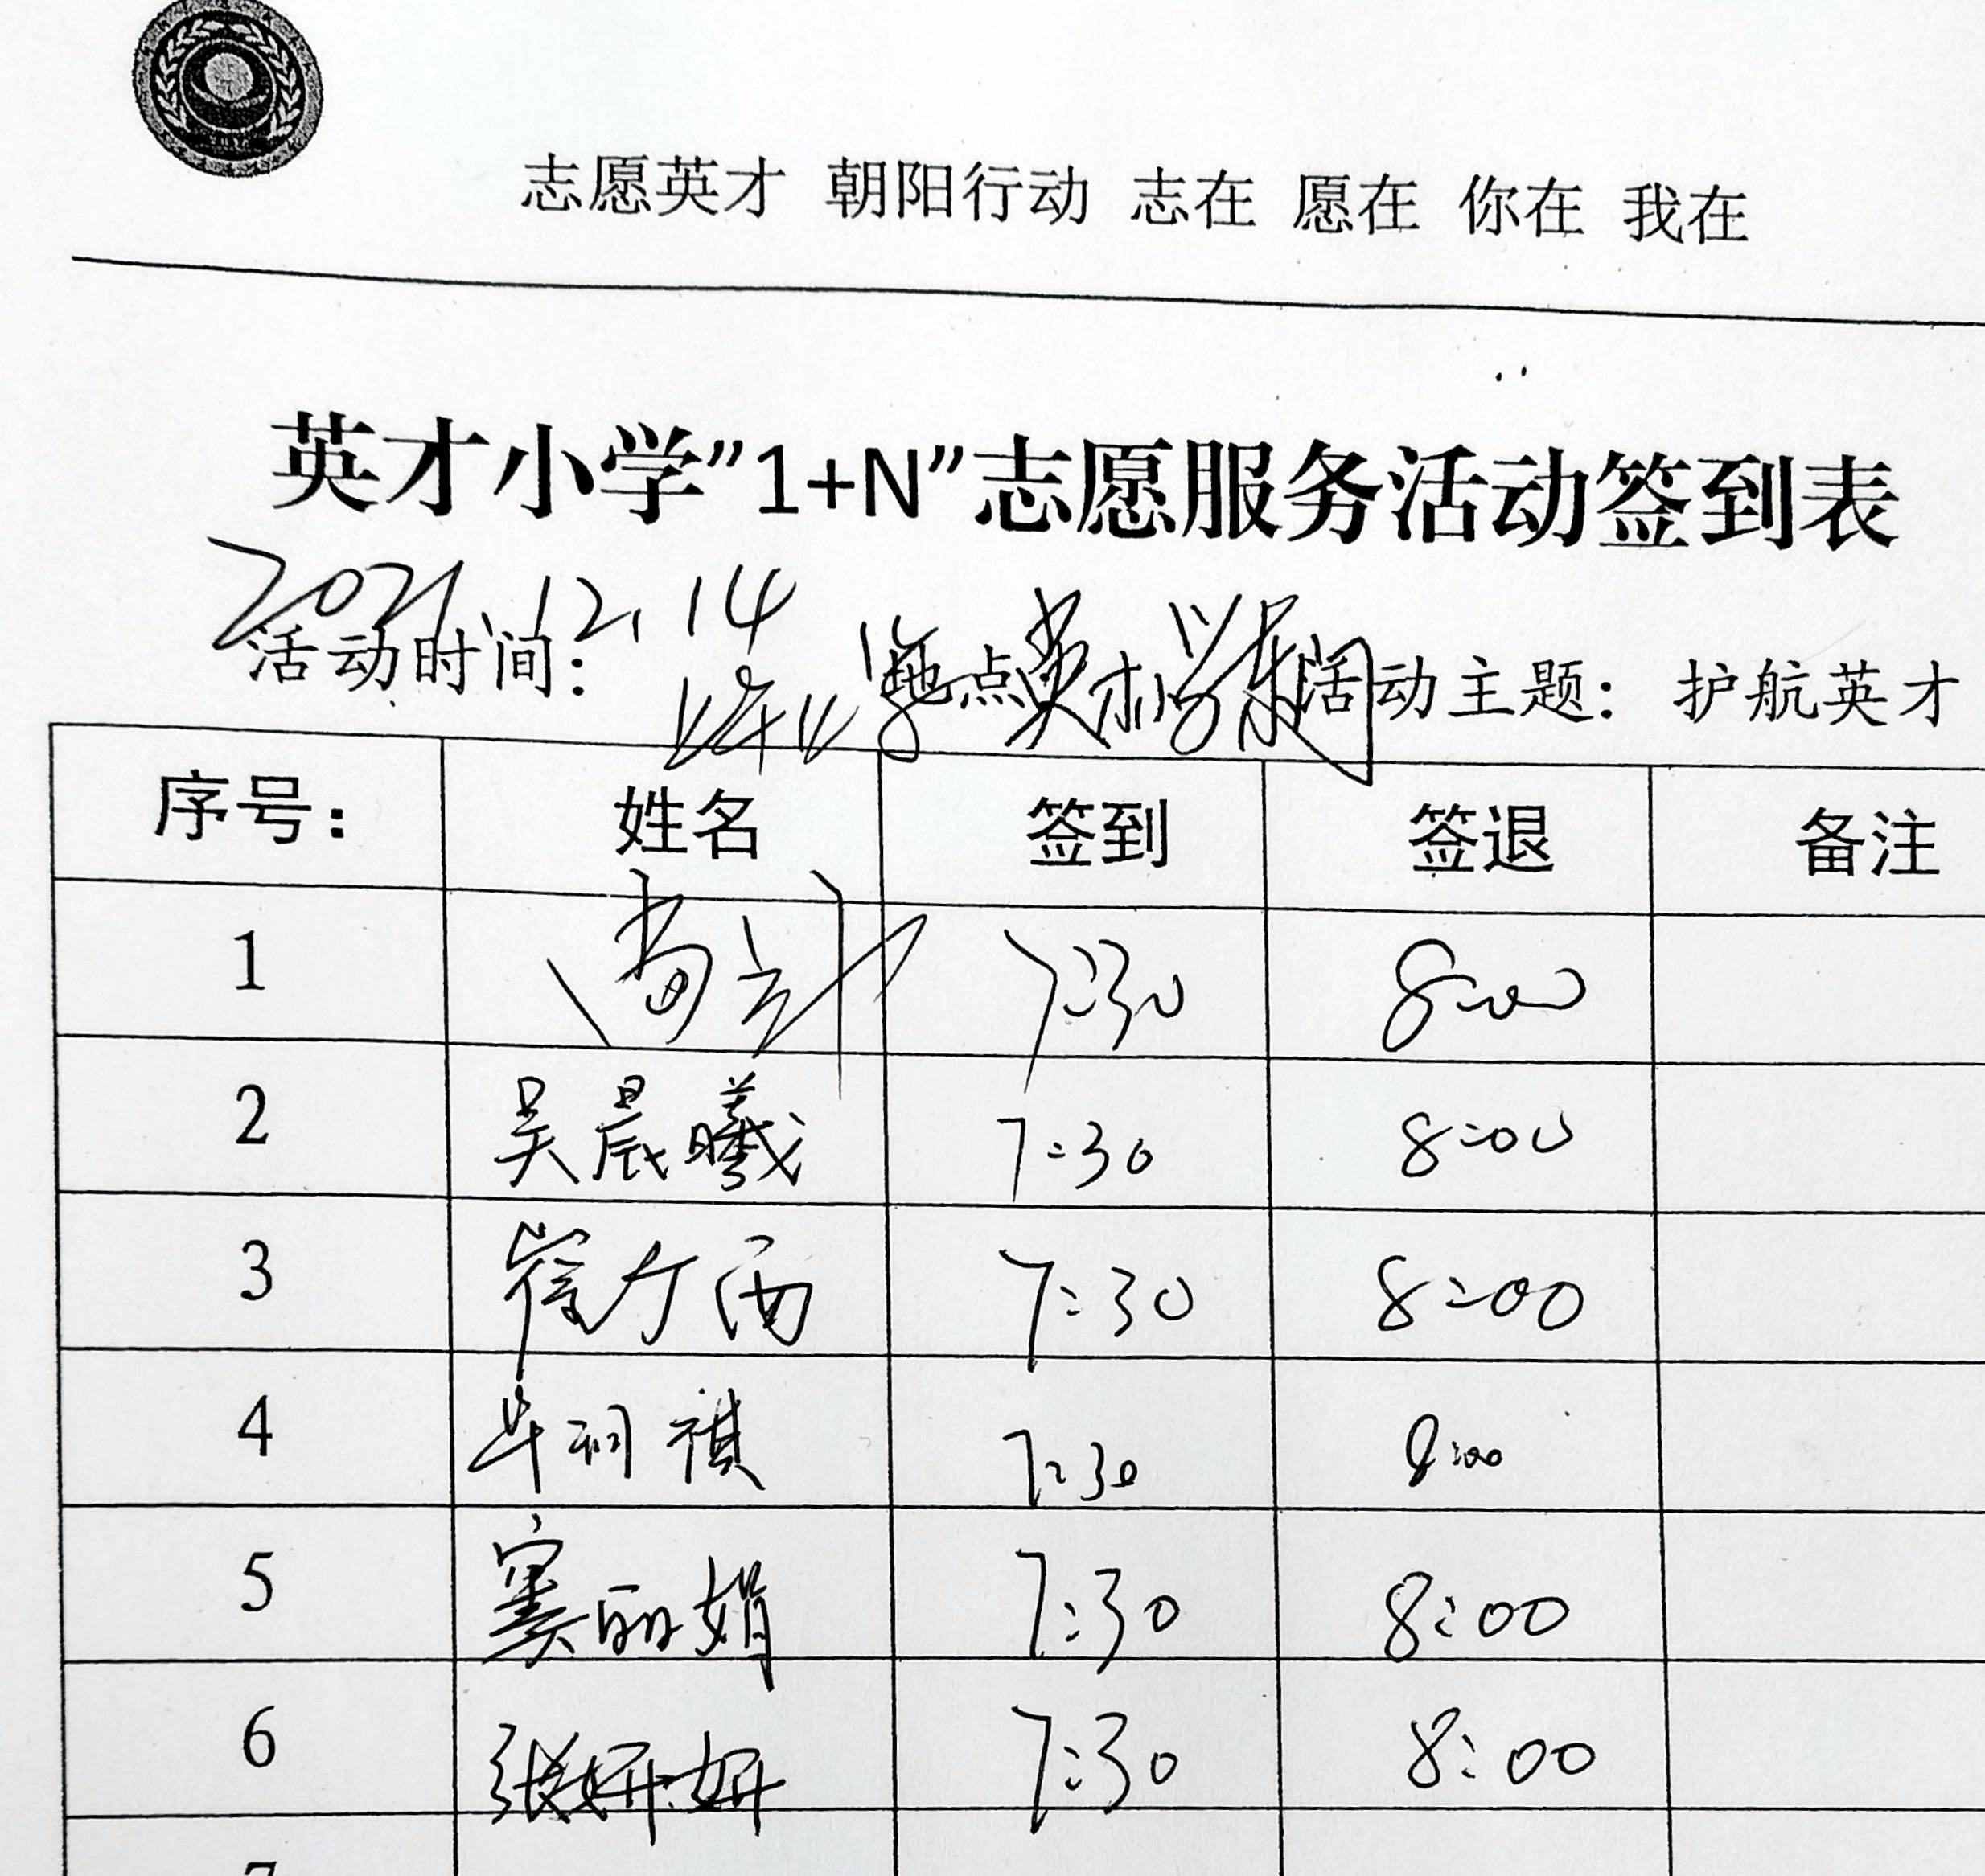 志愿英才 朝阳行动 志在 愿在 你在 我在
英才小学”1+N”志愿服务活动签到表
2021.12.14
活动时间: 地点 活动主题: 护航英才
序号: 姓名 签到 签退 备注
1 7:30 8:00
2 吴晨曦 7:30 8:00
3 7:30 8:00
4 7:30 8:00
5 窦丽娟 7:30 8:00
6 张妍妍 7:30 8:00
7